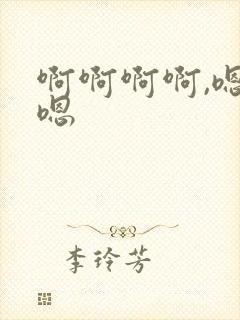 啊啊啊啊,嗯
嗯
李玲芳